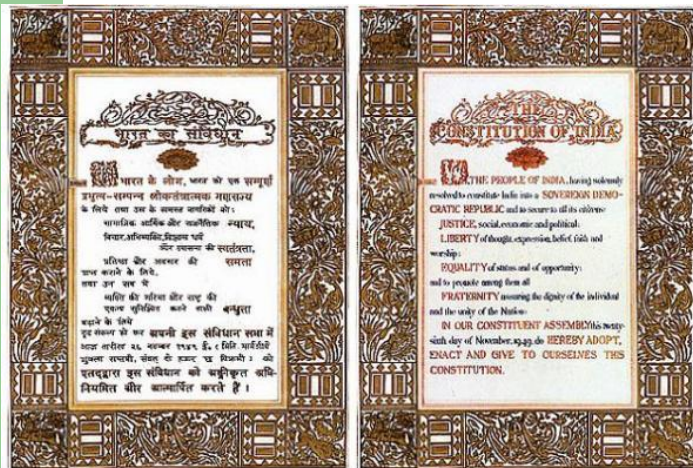 भारत का संविधान
हम भारत के लोग, भारत को एक सम्पूर्ण
प्रभुत्व-सम्पन्न लोकतंत्रात्मक गणराज्य
के लिये तथा उस के समस्त नागरिकों को:
सामाजिक आर्थिक और राजनैतिक न्याय,
विचार, अभिव्यक्ति, विश्वास धर्म
और उपासना की स्वतंत्रता,
प्रतिष्ठा और अवसर की समता
प्राप्त कराने के लिये,
तथा उन सब में
व्यक्ति की गरिमा और राष्ट्र की
एकता सुनिश्चित करने वाली बन्धुता
बढ़ाने के लिये
दृढ़ संकल्प हो कर अपनी इस संविधान सभा में
आज तारीख २६ नवम्बर १९४९ ई०
शुक्ला सप्तमी, संवत् दो हजार छ विक्रमी) को
एतद्द्वारा इस संविधान को अङ्गीकृत अधि-
नियमित और आत्मार्पित करते हैं ।
THE
CONSTITUTION OF INDIA
WE, THE PEOPLE OF INDIA, having solemnly
resolved to constitute India into a SOVEREIGN DEMO-
CRATIC REPUBLIC and to secure to all its citizens:
JUSTICE, social, economic and political;
LIBERTY of thought, expression, belief, faith and
worship;
EQUALITY of status and of opportunity;
and to promote among them all
FRATERNITY assuring the dignity of the individual
and the unity of the Nation;
IN OUR CONSTITUENT ASSEMBLY this twenty-
sixth day of November, 1949, do HEREBY ADOPT,
ENACT AND GIVE TO OURSELVES THIS
CONSTITUTION.